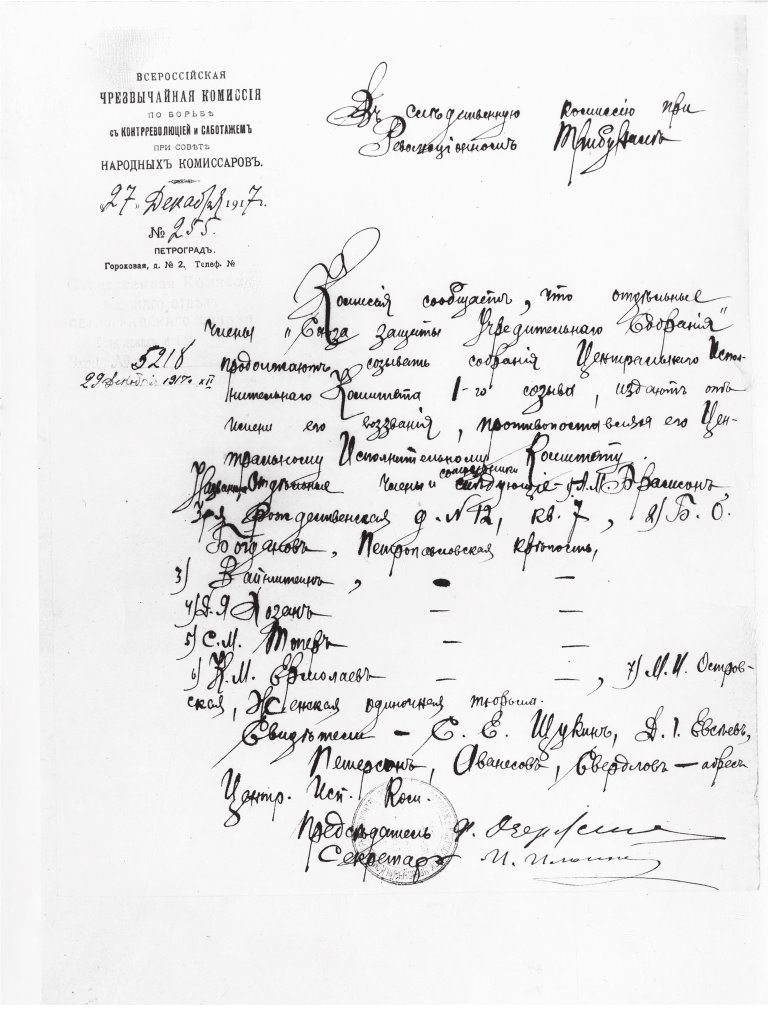 ВСЕРОССІЙСКАЯ
ЧРЕЗВЫЧАЙНАЯ КОМИССІЯ
ПО БОРЬБѢ
съ КОНТРРЕВОЛЮЦІЕЙ и САБОТАЖЕМЪ
ПРИ СОВѢТѢ
НАРОДНЫХЪ КОМИССАРОВЪ.
"27" Декабря 1917 г.
№ 255.
ПЕТРОГРАДЪ.
Гороховая, д. № 2, Телеф. №
Въ слѣдственную комиссію при
Революціонномъ Трибуналѣ
Комиссія сообщаетъ, что отдѣльные
члены "Союза защиты Учредительнаго Собранія"
5218
29 декабря 1917 г.
продолжаютъ созывать собранія Центральнаго Испол-
нительнаго Комитета 1-го созыва, издаютъ отъ
имени его воззванія, противопоставляя его Цен-
тральному Исполнительному Комитету.
Отдѣльные члены и слѣдующіе А.М. Брамсонъ,
Рождественская д. № 12, кв. 7, 2) Б. О.
Богдановъ, Петропавловская крѣпость,
3) Вайнштейнъ, — —
4) — —
5) С. М. — —
6) К. М. Ермолаевъ — —, 7) М. И. Остров-
ская, Женская одиночная тюрьма.
Свидѣтели — С. Е. Щукинъ, Д. І. Евсѣевъ,
Петерсонъ, Аванесовъ, Свердловъ — адресъ
Центр. Исп. Ком.
Предсѣдатель Ф. Дзержинскій
Секретарь И. Ильинъ